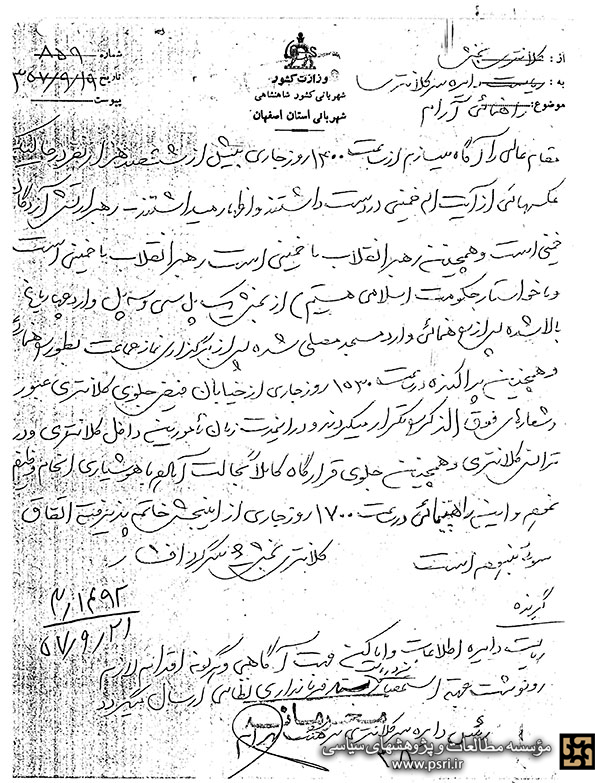 وزارت کشور
شهربانی کشور شاهنشاهی
شهربانی استان اصفهان
شماره ۸۵۹
تاریخ ۳۵۷/۹/۱۹
پیوست
از: کلانتری بخش
به: ریاست دایره سر کلانتریها
موضوع: راهپیمائی آرام
مقام عالی را آگاه میسازم از ساعت ۱۴۰۰ روز جاری بیش از ششصد هزار نفر در حالیکه
عکسهائی از آیت اله خمینی در دست داشتند و اظهار میداشتند - رهبر ارتش آزادگان
خمینی است و همچنین رهبر انقلاب ما خمینی است رهبر انقلاب با خمینی است
و ما خواستار حکومت اسلامی هستیم) از بخش یک پل سی و سه پل وارد چهارباغ
بالا شده پس از راهپیمائی وارد مسجد مصلی شده پس از برگزاری نماز جماعت بطور
و همچنین پراکنده در ساعت ۱۵۳۰ روز جاری از خیابان فیض جلوی کلانتری عبور
و شعارهای فوق الذکر را تکرار میکردند و در اینمدت زمان مأمورین داخل کلانتری و در
تراس کلانتری و همچنین جلوی قرارگاه کاملا بحالت آرام با هوشیاری انجام وظیفه
نموده و این راهپیمائی در ساعت ۱۷۰۰ روز جاری از این بخش خاتمه پذیرفته اتفاق
سوئی نبوده است
کلانتری بخش ۶ سرگرد
۲/۱۴۹۲
۵۷/۹/۲۱
گیرنده
ریاست دایره اطلاعات جهت آگاهی و هرگونه اقدام لازم
رونوشت جهت استحضار فرمانداری نظامی ارسال میگردد
رئیس دایره سر کلانتری سرهنگ
مؤسسه مطالعات و پژوهشهای سیاسی
www.psri.ir